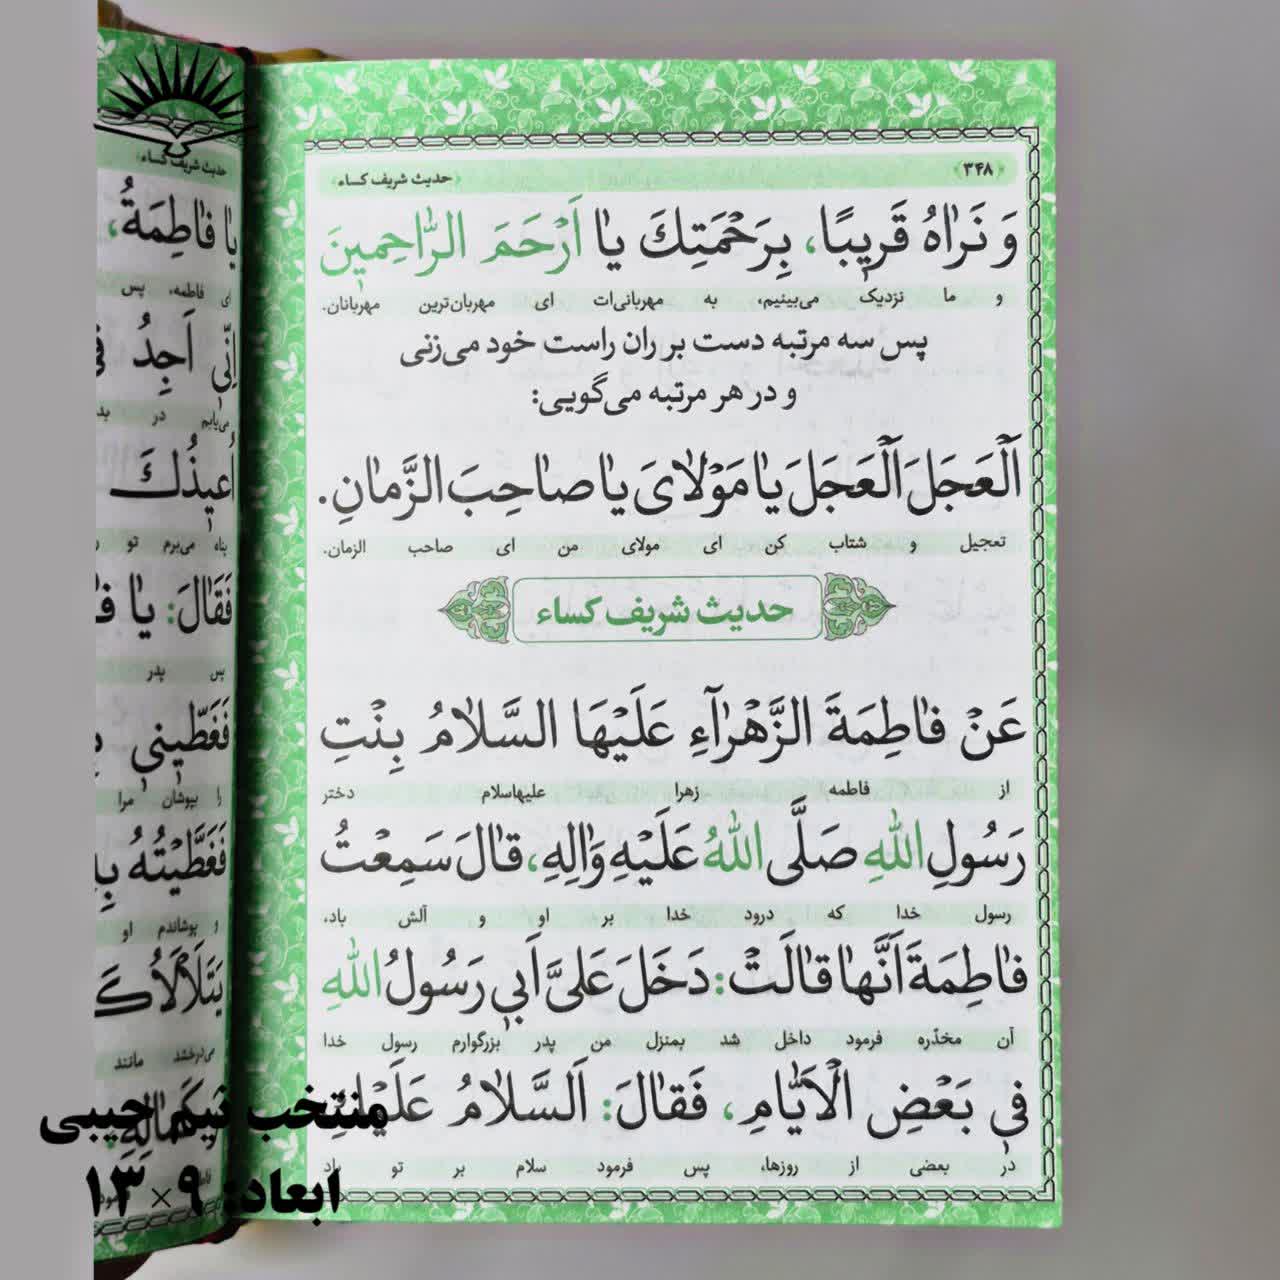 ﴿۳۴۸﴾
﴿حدیث شریف کساء﴾
وَ نَرٰاهُ قَرٖیبًا، بِرَحْمَتِكَ یٰا اَرْحَمَ الرّٰاحِمٖینَ
و ما نزدیک می‌بینیم، به مهربانی‌ات ای مهربان‌ترین مهربانان.
پس سه مرتبه دست بر ران راست خود می‌زنی
و در هر مرتبه می‌گویی:
اَلْعَجَلَ اَلْعَجَلَ یٰا مَوْلاٰیَ یٰا صٰاحِبَ الزَّمٰانِ.
تعجیل و شتاب کن ای مولای من ای صاحب الزمان.
حدیث شریف کساء
عَنْ فٰاطِمَةَ الزَّهْرٰآءِ عَلَیْهَا السَّلاٰمُ بِنْتِ
از فاطمه زهرا علیهاسلام دختر
رَسُولِ اللهِ صَلَّی اللهُ عَلَیْهِ وَاٰلِهِ، قٰالَ سَمِعْتُ
رسول خدا که درود خدا بر او و آلش باد،
فٰاطِمَةَ اَنَّهٰا قٰالَتْ: دَخَلَ عَلَیَّ اَبٖی رَسُولُ اللهِ
آن مخدّره فرمود داخل شد بمنزل من پدر بزرگوارم رسول خدا
فٖی بَعْضِ الْاَیّٰامِ، فَقٰالَ: اَلسَّلاٰمُ عَلَیْكِ
در بعضی از روزها، پس فرمود سلام بر تو باد
حدیث شریف کساء﴾
یٰا فٰاطِمَةُ،
ای فاطمه، پس
اِنّٖی اَجِدُ
می‌یابم در
اُعٖیذُكَ
پناه می‌برم تو
فَقٰالَ: یٰا
پس پدر
فَغَطّٖینٖی
را بپوشان مرا
فَغَطَّیْتُهُ
و پوشاندم او
یَتَلَأْلَأُ
می‌درخشد مانند
منتخب نیم جیبی
ابعاد: ۹ × ۱۳